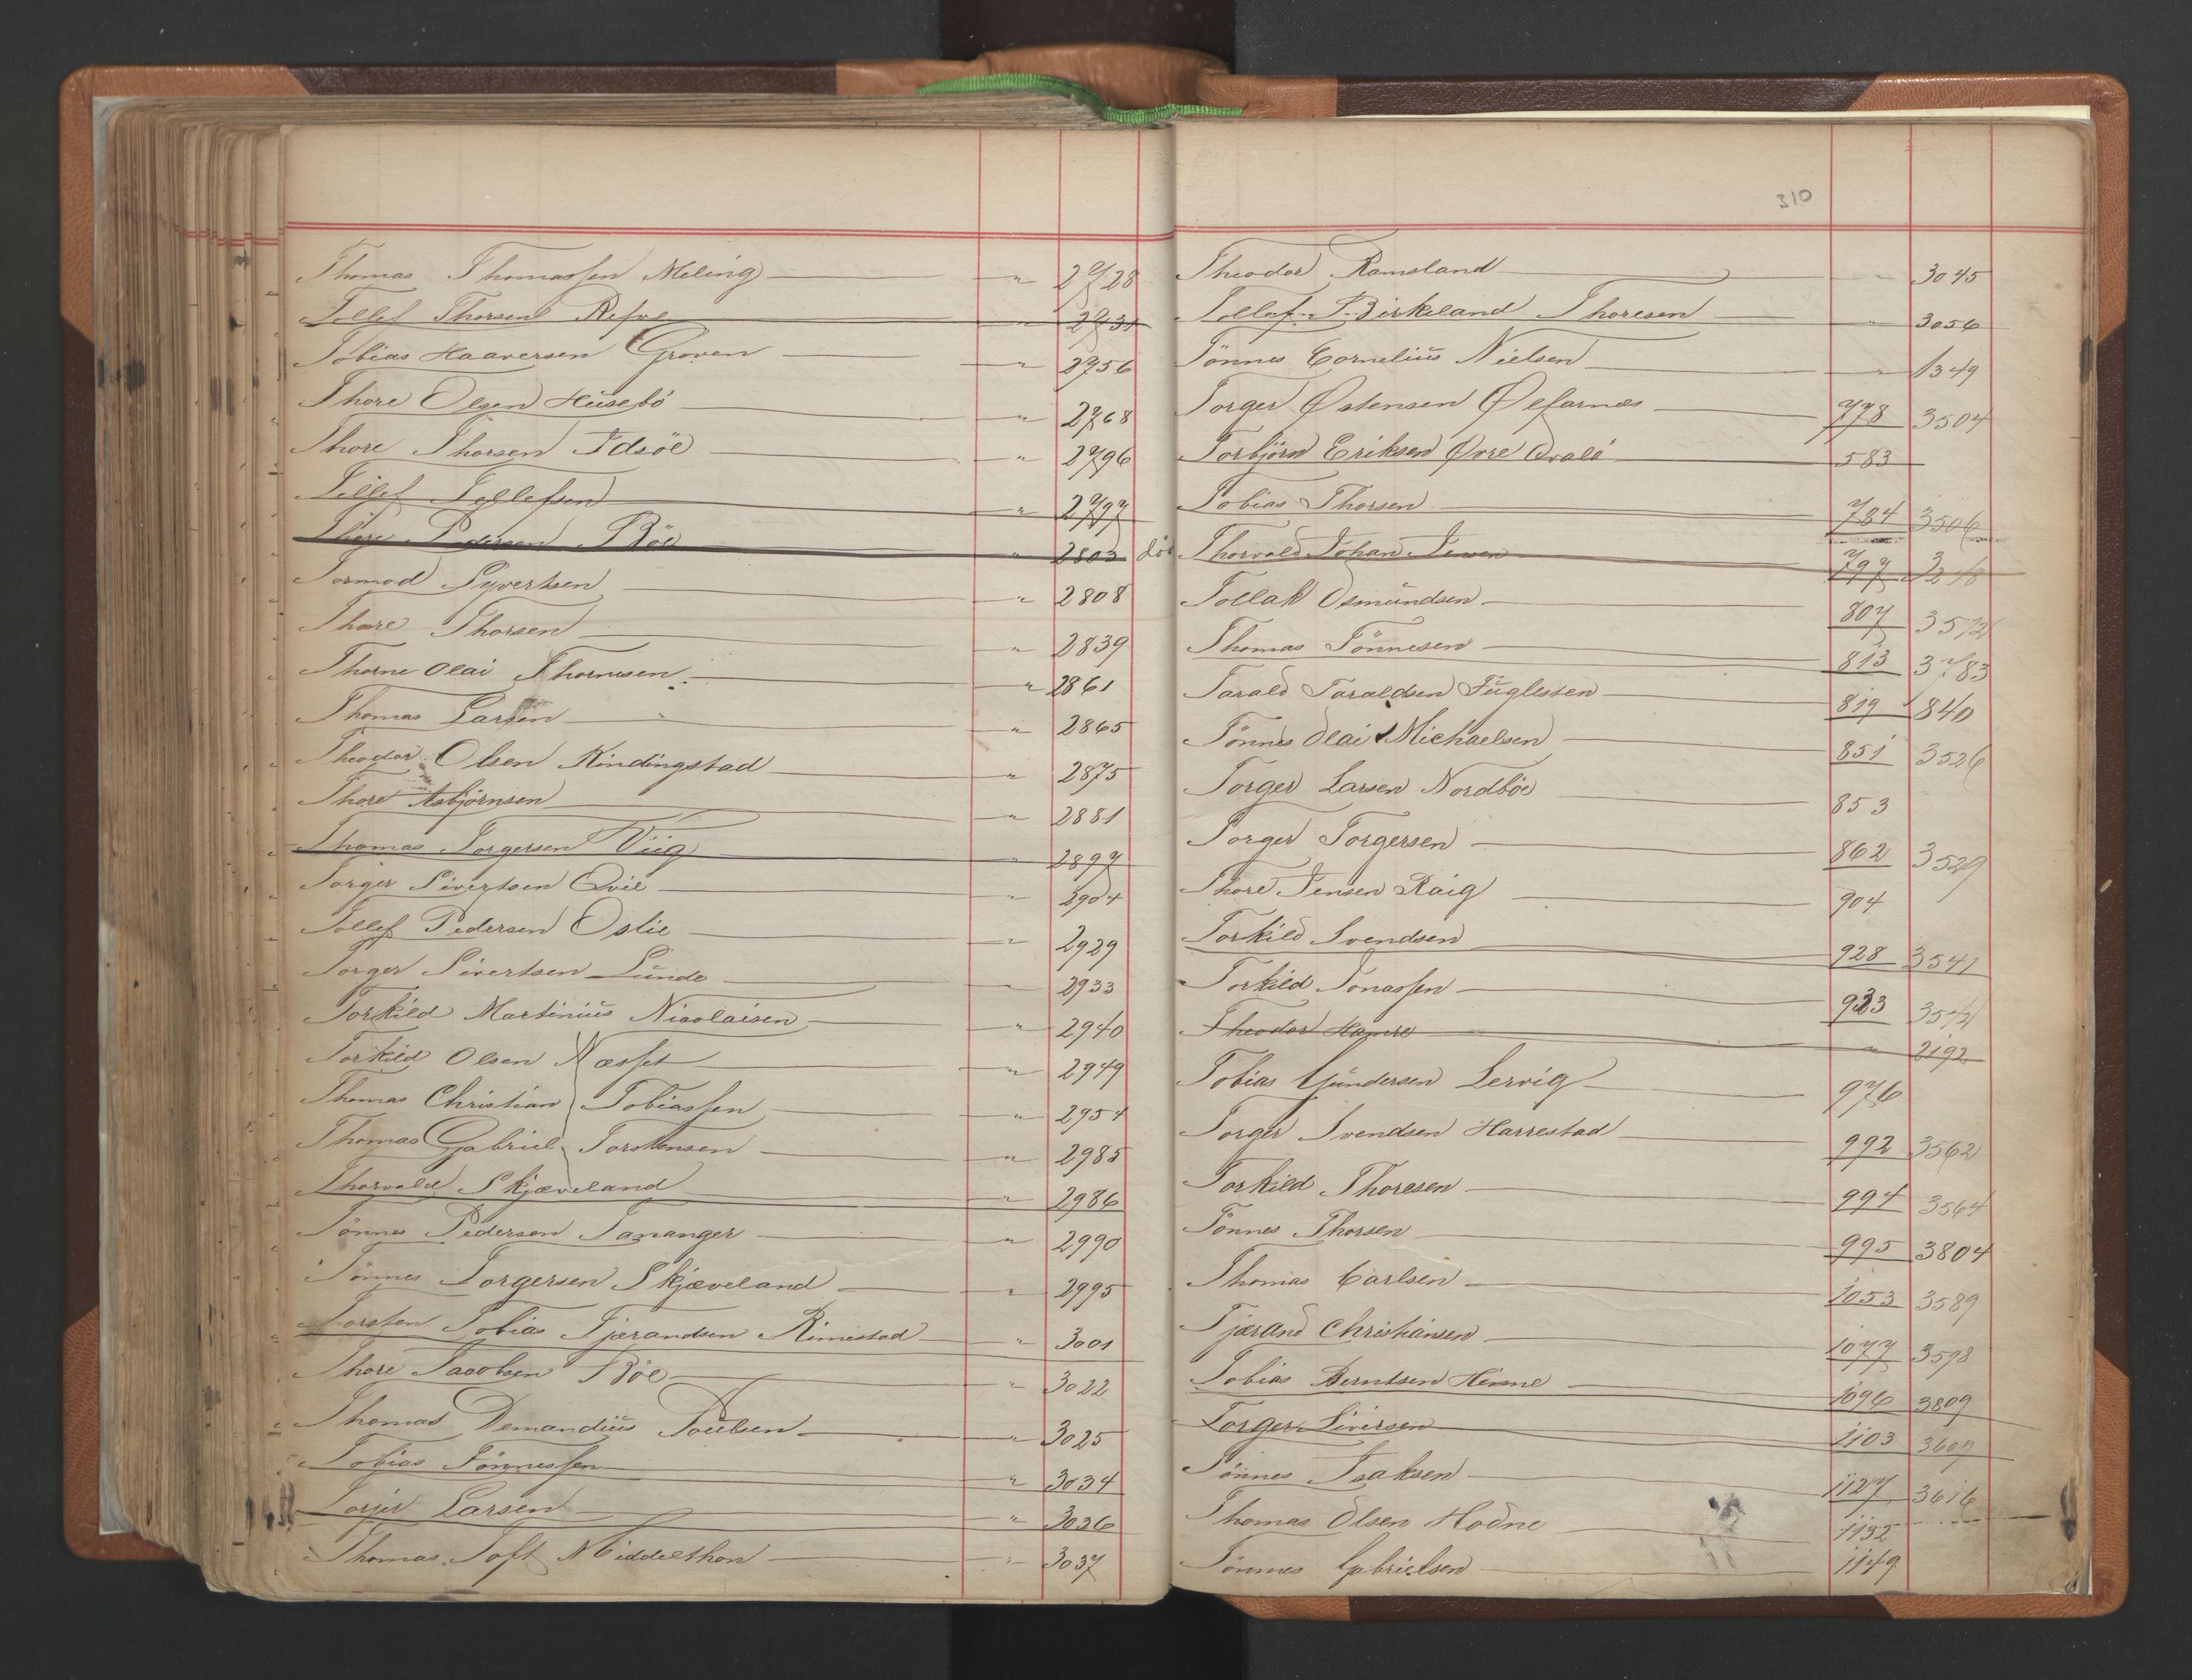 Thomas Thomassen Meling " 2728
Tollef Thorsen Refve " 2731
Tobias Haaversen Groven " 2756
Thore Olsen Husebö " 2768
Thore Thorsen Idsöe " 2796
Tillef Tollefsen " 2797
Thore Pedersen Böe " 2803 död
Tormod Syvertsen " 2808
Thore Thorsen " 2839
Thorne Olai Thornesen " 2861
Thomas Larsen " 2865
Theodor Olsen Rindingstad " 2875
Thore Asbjörnsen " 2881
Thomas Torgersen Viig " 2897
Torger Sivertsen Qvie " 2904
Tollef Pedersen Oslie " 2929
Torger Sivertsen Lunde " 2933
Torkild Martinius Nicolaisen " 2940
Torkild Olsen Næsset " 2949
Thomas Christian Tobiassen " 2954
Thomas Gabriel Torstensen " 2985
Thorvald Skjæveland " 2986
Tönnes Pedersen Tananger " 2990
Tönnes Torgersen Skjæveland " 2995
Torsten Tobias Tjærandsen Rimestad " 3001
Thore Jacobsen Böe " 3022
Thomas Demandius Poulsen " 3025
Tobias Tönnessen " 3034
Torjer Larsen " 3036
Thomas Toft Middelthon " 3037
310
Theodor Ramsland " 3045
Tollef Birkeland Thoresen " 3056
Tönnes Cornelius Nielsen " 1349
Torger Østensen Ølfarnes 778 3504
Torbjörn Eriksen Øvre Qvalö 583
Tobias Thorsen 784 3506
Thorvald Johan Jensen 797 3218
Tollak Osmundsen 807 3512
Thomas Tönnesen 813 3783
Tarald Taraldsen Fuglesten 819 840
Tönnes Olai Michaelsen 851 3526
Torger Larsen Nordböe 853
Torger Torgersen 862 3529
Thore Jensen Raig 904
Torkild Svendsen 928 3541
Torkild Jonassen 933 3542
Theodor Hamre " 2192
Tobias Gundersen Lervig 976
Torger Svendsen Harrestad 992 3562
Torkild Thoresen 994 3564
Tönnes Thorsen 995 3804
Thomas Carlsen 1053 3589
Tjærand Christiansen 1077 3598
Tobias Berntsen Hinne 1096 3809
Torger Siversen 1103 3607
Tönnes Isaksen 1127 3616
Thomas Olsen Hodne 1132
Tönnes Gabrielsen 1149